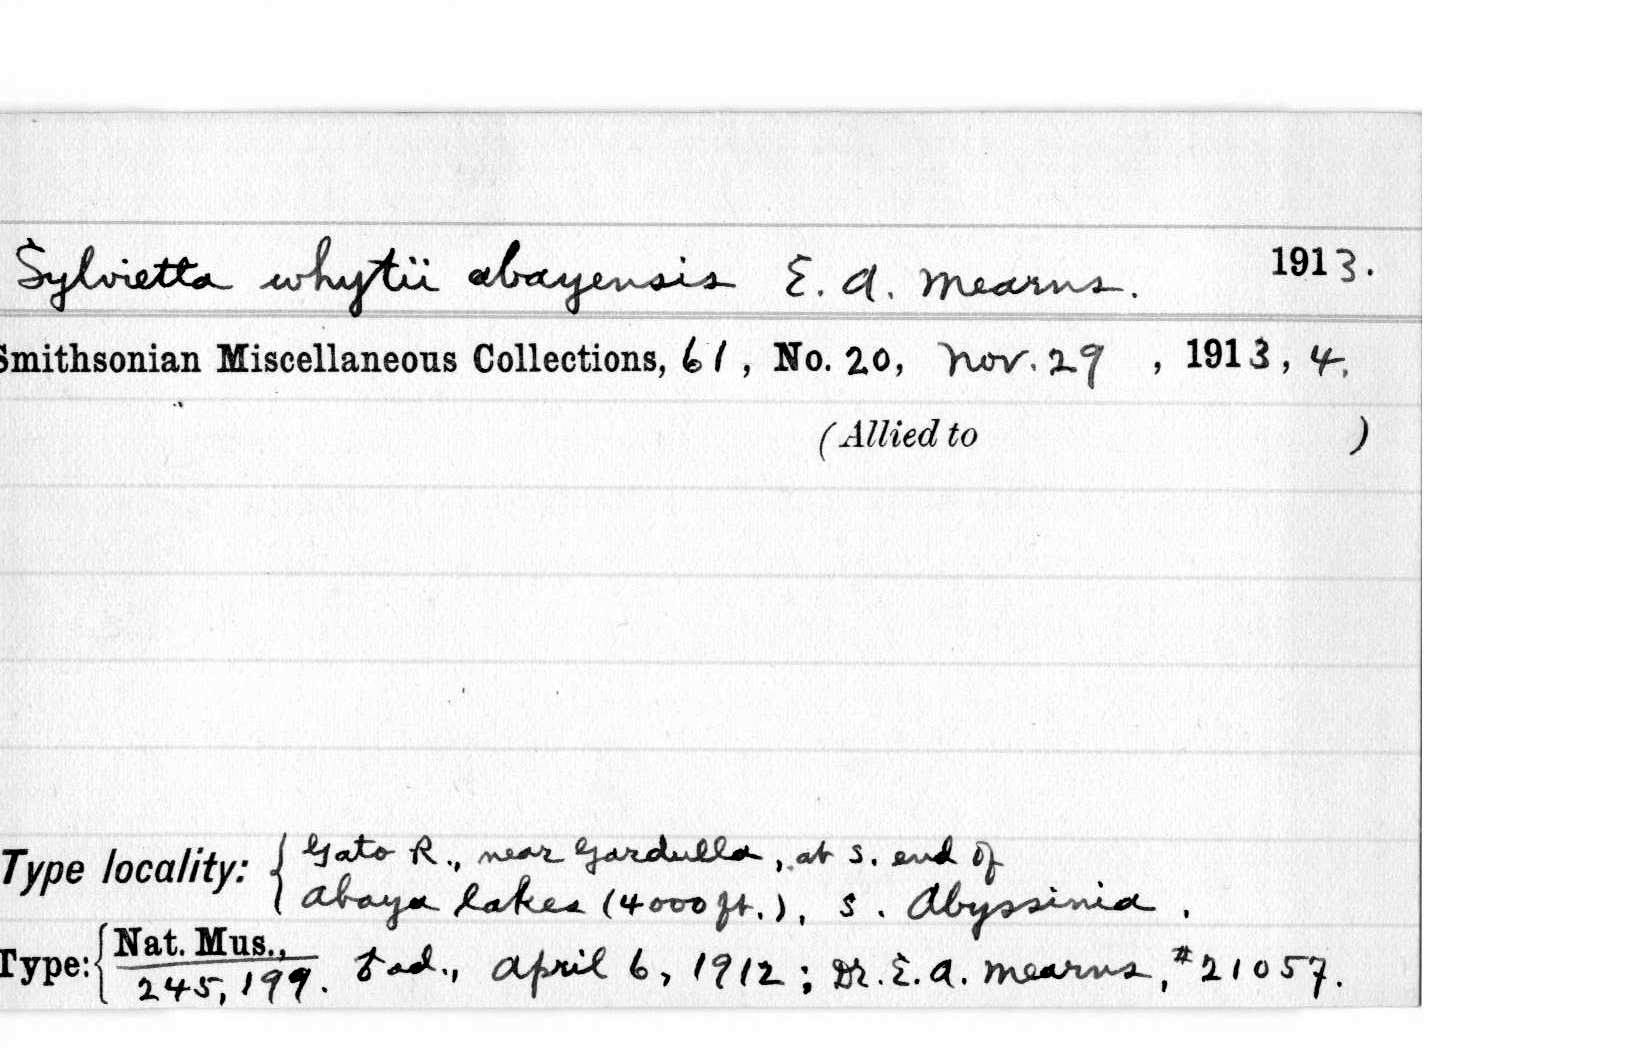 Sylvietta whytii abayensis E. A. Mearns. 1913.
Smithsonian Miscellaneous Collections, 61, No. 20, Nov. 29, 1913, 4.
(Allied to )
Type locality: { Gato R., near Gardulla, at S. end of
Abaya Lakes (4000 ft.), S. Abyssinia.
Type: { Nat. Mus.,
245,199. ad., April 6, 1912; Dr. E. A. Mearns, #21057.